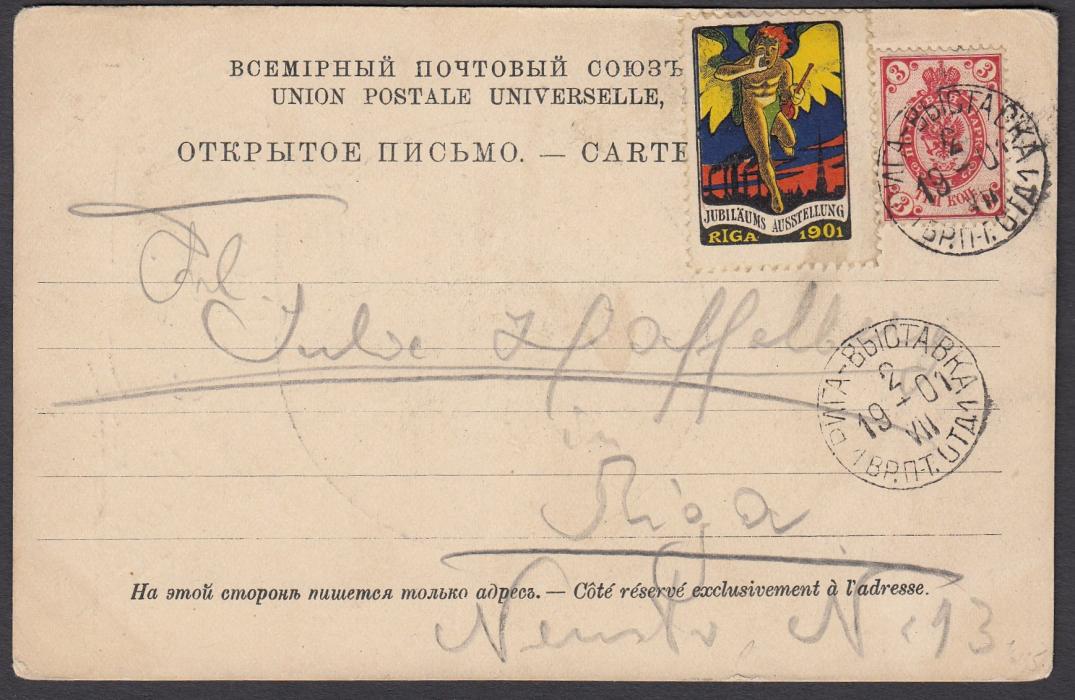 ВСЕМІРНЫЙ ПОЧТОВЫЙ СОЮЗЪ
UNION POSTALE UNIVERSELLE,
ОТКРЫТОЕ ПИСЬМО. — CARTE
JUBILÄUMS AUSSTELLUNG
RIGA 1901
3 3
3
ТРИ КОП.
РИГА-ВЫСТАВКА
19 01
VII
1 ВР.П-Т. ОТД 1
Frl.
Julie
РИГА-ВЫСТАВКА
2
19 01
VII
1 ВР.П-Т. ОТД 1
in
Riga
На этой сторонѣ пишется только адресъ. — Côté réservé exclusivement à l'adresse.
N 13